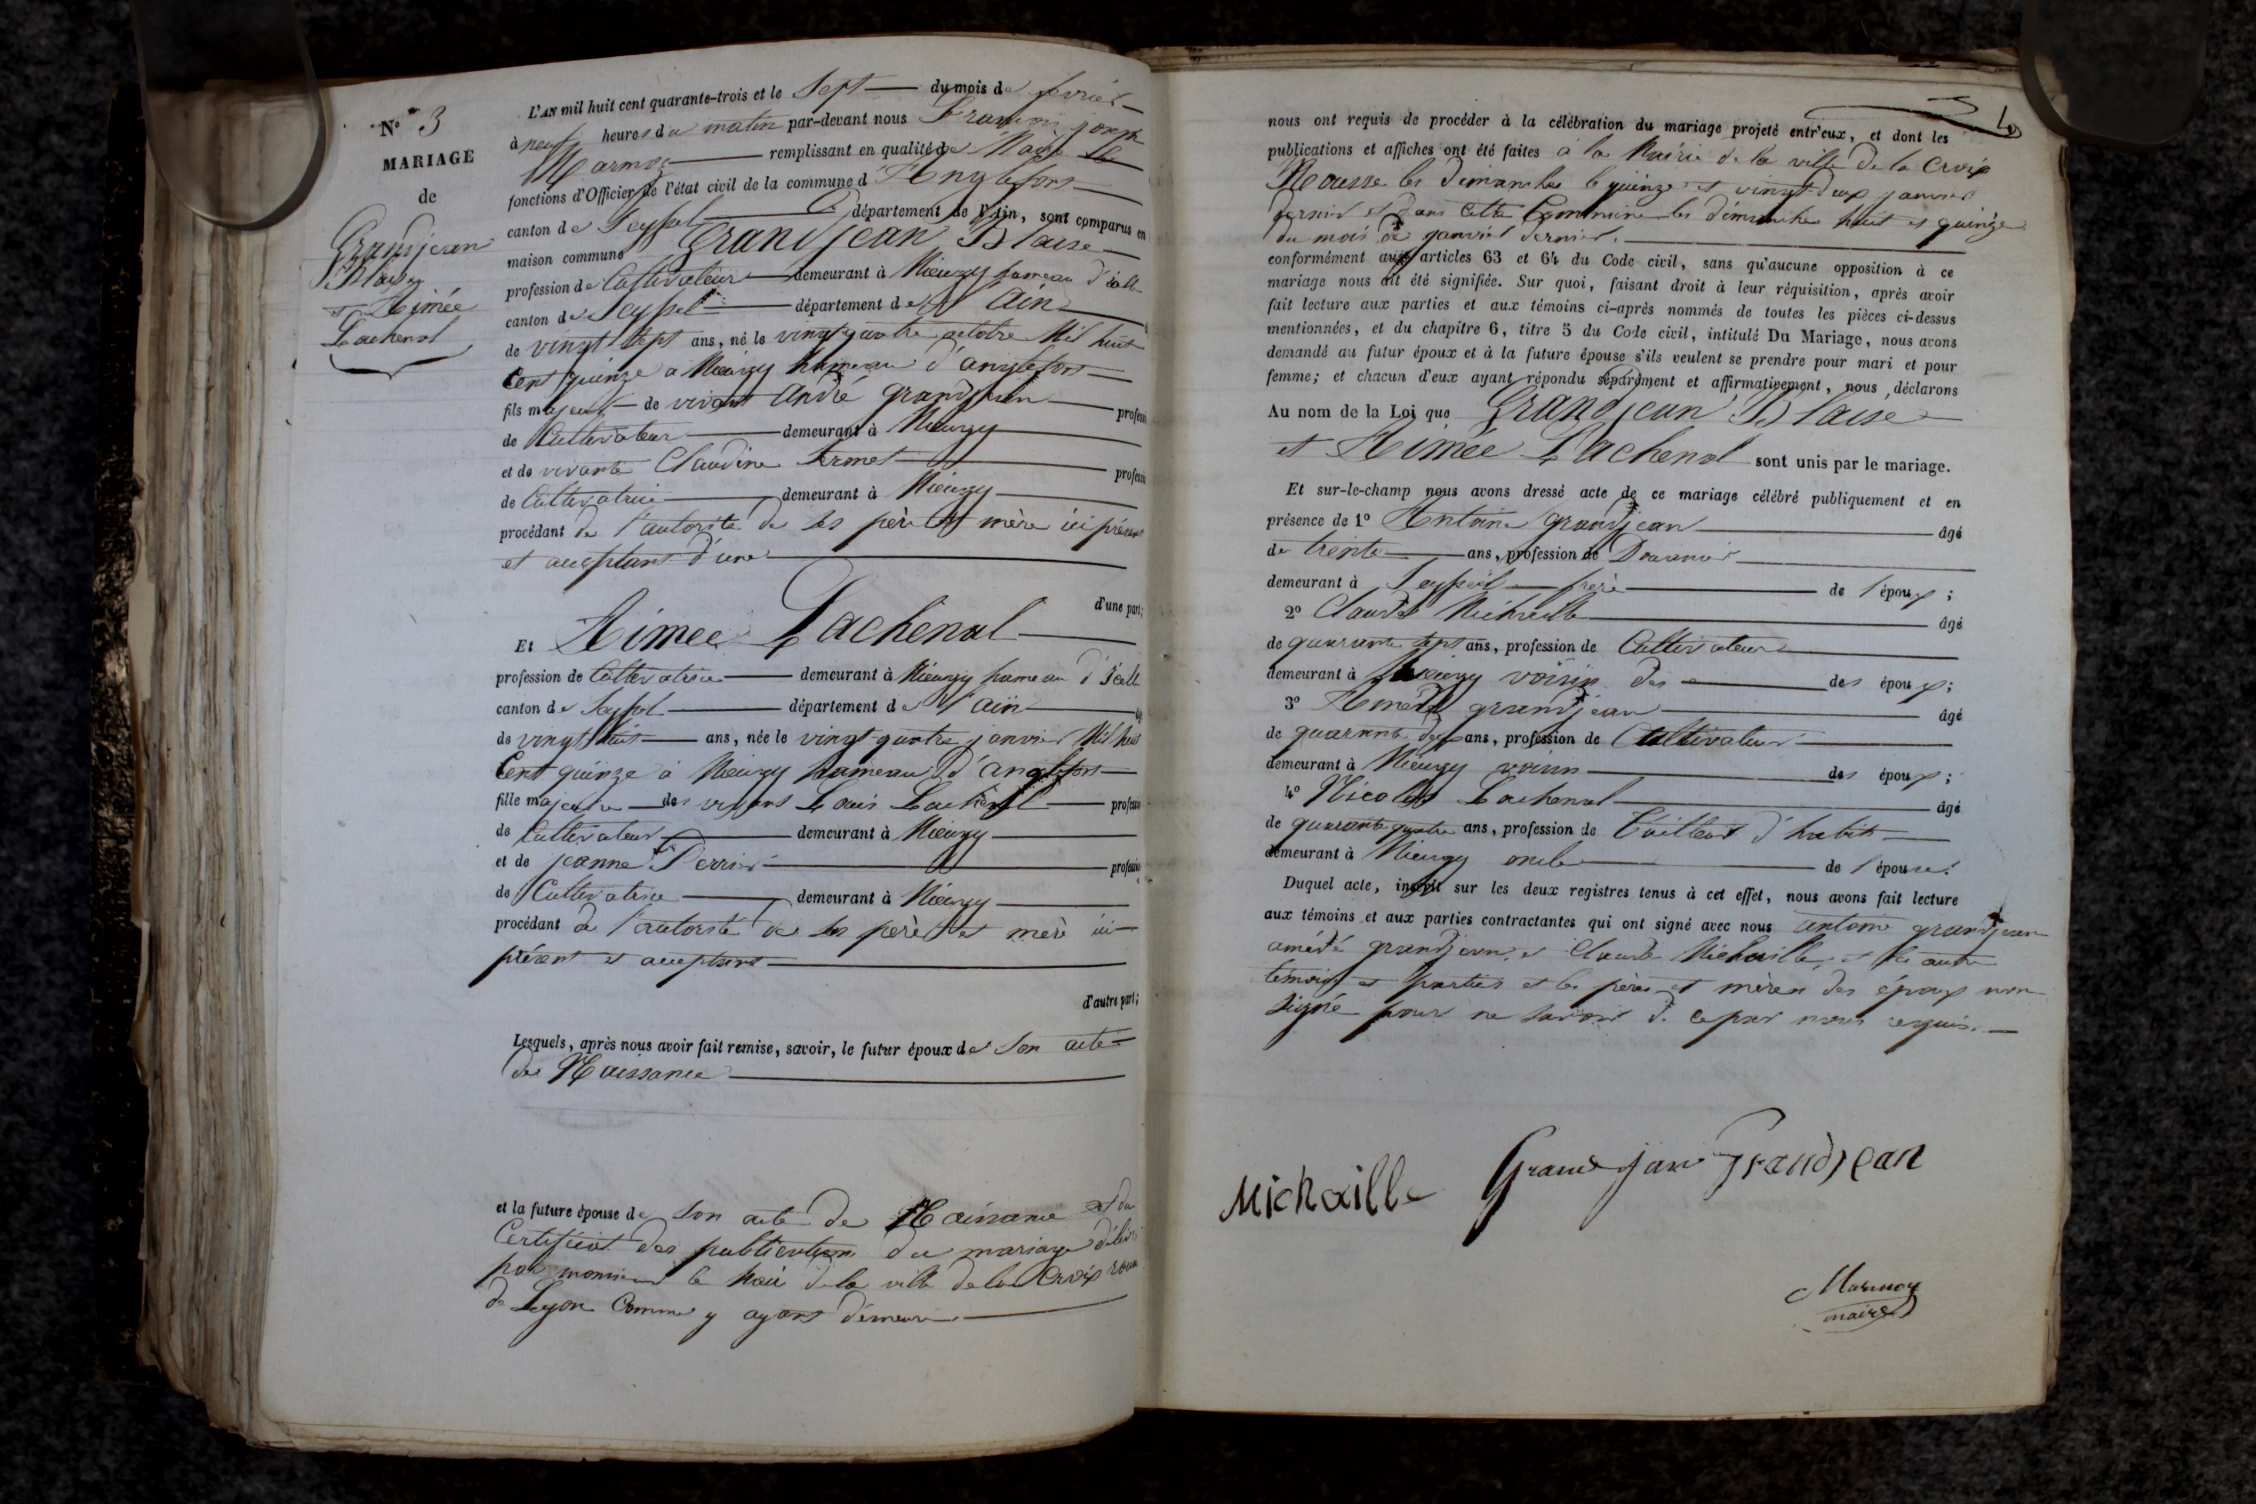 N° 3
MARIAGE
de
Grandjean
Blaise
et Aimée
Lachenal
L'AN mil huit cent quarante-trois et le Sept du mois de fevrier
à neuf heures du matin par-devant nous François joseph
Marmoz remplissant en qualité de Maire les
fonctions d'Officier de l'état civil de la commune d'Anglefort
canton de Seyssel département de l'Ain, sont comparus en
maison commune Grandjean Blaise
profession de Cultivateur demeurant à Mieugy hameau d'icelle
canton de Seyssel département de l'Ain
de vingt sept ans, né le vingt quatre octobre Mil huit
Cent quinze a Mieugy hameau d'anglefort
fils majeur de vivant andré grandjean profession
de Cultivateur demeurant à Mieugy
et de vivante Claudine profession
de Cultivatrice demeurant à Mieugy
procédant de l'autorité de ses père et mère ici présent
et acceptant d'une
d'une part;
Et Aimée Lachenal
profession de Cultivatrice demeurant à Mieugy hameau d'icelle
canton de Seyssel département de l'ain
de vingt huit ans, née le vingt quatre janvier Mil huit
Cent quinze à Mieugy hameau d'anglefort
fille majeure des vivans Louis Lachenal profession
de Cultivateur demeurant à Mieugy
et de jeanne Perrier profession
de Cultivatrice demeurant à Mieugy
procédant de l'autorité de ses père et mère ici
présent et acceptant
d'autre part;
Lesquels, après nous avoir fait remise, savoir, le futur époux de son acte
de Naissance
et la future épouse de son acte de Naissance et du
Certificat des publications du mariage délivré
par monsieur le Maire de la ville de la Croix rousse
de Lyon Comme y ayant demeuré
nous ont requis de procéder à la célébration du mariage projeté entr'eux, et dont les
publications et affiches ont été faites à la Mairie de la ville de la Croix
Rousse les dimanches le quinze et vingt deux janvier
dernier et dans cette Commune les dimanches huit et quinze
du mois de janvier dernier.
conformément aux articles 63 et 64 du Code civil, sans qu'aucune opposition à ce
mariage nous ait été signifiée. Sur quoi, faisant droit à leur réquisition, après avoir
fait lecture aux parties et aux témoins ci-après nommés de toutes les pièces ci-dessus
mentionnées, et du chapitre 6, titre 5 du Code civil, intitulé Du Mariage, nous avons
demandé au futur époux et à la future épouse s'ils veulent se prendre pour mari et pour
femme; et chacun d'eux ayant répondu séparément et affirmativement, nous déclarons
Au nom de la Loi que Grandjean Blaise
et Aimée Lachenal sont unis par le mariage.
Et sur-le-champ nous avons dressé acte de ce mariage célébré publiquement et en
présence de 1° Antoine grandjean âgé
de trente ans, profession de Douanier
demeurant à Seyssel frère de l'époux;
2° Claude Michaille âgé
de quarante sept ans, profession de Cultivateur
demeurant à Mieugy voisin des des époux;
3° Amédé grandjean âgé
de quarante deux ans, profession de Cultivateur
demeurant à Mieugy voisin des époux;
4° Nicolas Lachenal âgé
de quarante quatre ans, profession de Tailleur d'habits
demeurant à Mieugy oncle de l'épouse.
Duquel acte, inscrit sur les deux registres tenus à cet effet, nous avons fait lecture
aux témoins et aux parties contractantes qui ont signé avec nous antoine grandjean
amédé grandjean et Claude Michaille, et les autres
témoins et parties et les pères et mères des époux non
signé pour ne savoir de ce par nous requis.
Michaille Grand jean Grandjean
Marmoz
maire